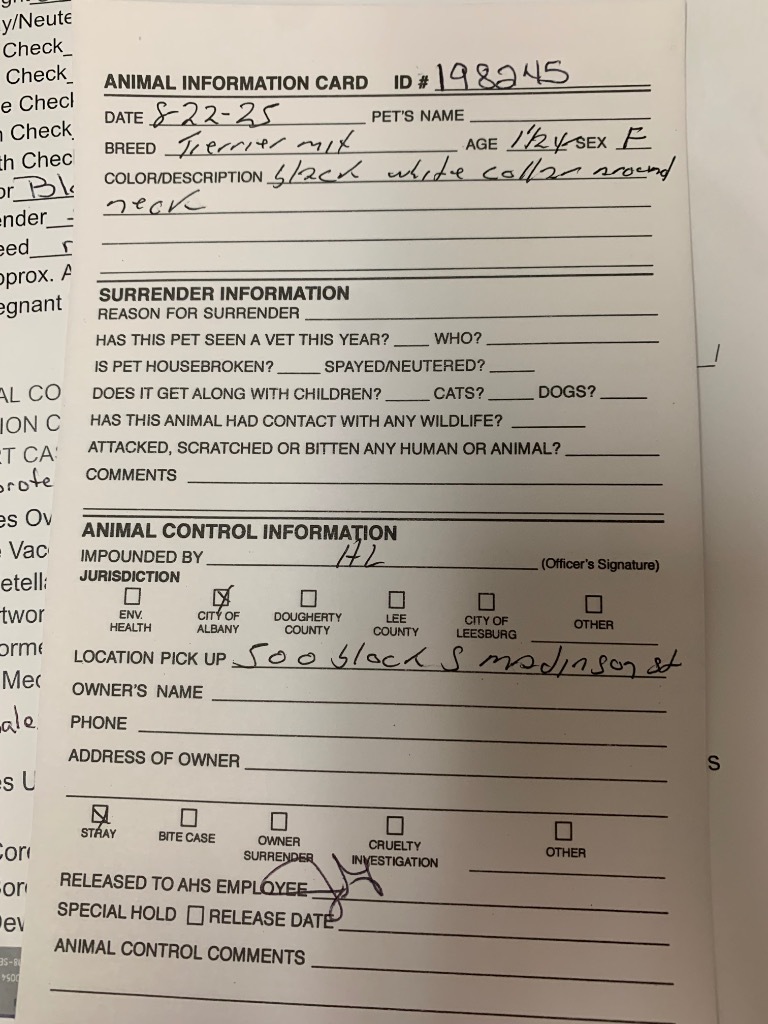 y/Neute
Check_
Check_
e Check
n Check
th Chec
or Bl
ender
eed
pprox. A
egnant
AL CO
ION C
T CA
prote
es Ov
Vac
etella
twor
orme
Med
ale
es U
Cor
Bor
Dev
ANIMAL INFORMATION CARD ID # 198245
DATE 8-22-25 PET'S NAME
BREED Terrier mix AGE 1 1/2 y SEX F
COLOR/DESCRIPTION black white collar around
neck
SURRENDER INFORMATION
REASON FOR SURRENDER
HAS THIS PET SEEN A VET THIS YEAR? WHO?
IS PET HOUSEBROKEN? SPAYED/NEUTERED?
DOES IT GET ALONG WITH CHILDREN? CATS? DOGS?
HAS THIS ANIMAL HAD CONTACT WITH ANY WILDLIFE?
ATTACKED, SCRATCHED OR BITTEN ANY HUMAN OR ANIMAL?
COMMENTS
ANIMAL CONTROL INFORMATION
IMPOUNDED BY HL (Officer's Signature)
JURISDICTION
ENV. HEALTH CITY OF ALBANY DOUGHERTY COUNTY LEE COUNTY CITY OF LEESBURG OTHER
LOCATION PICK UP 500 block S madinson st
OWNER'S NAME
PHONE
ADDRESS OF OWNER
STRAY BITE CASE OWNER SURRENDER CRUELTY INVESTIGATION OTHER
RELEASED TO AHS EMPLOYEE
SPECIAL HOLD RELEASE DATE
ANIMAL CONTROL COMMENTS
s